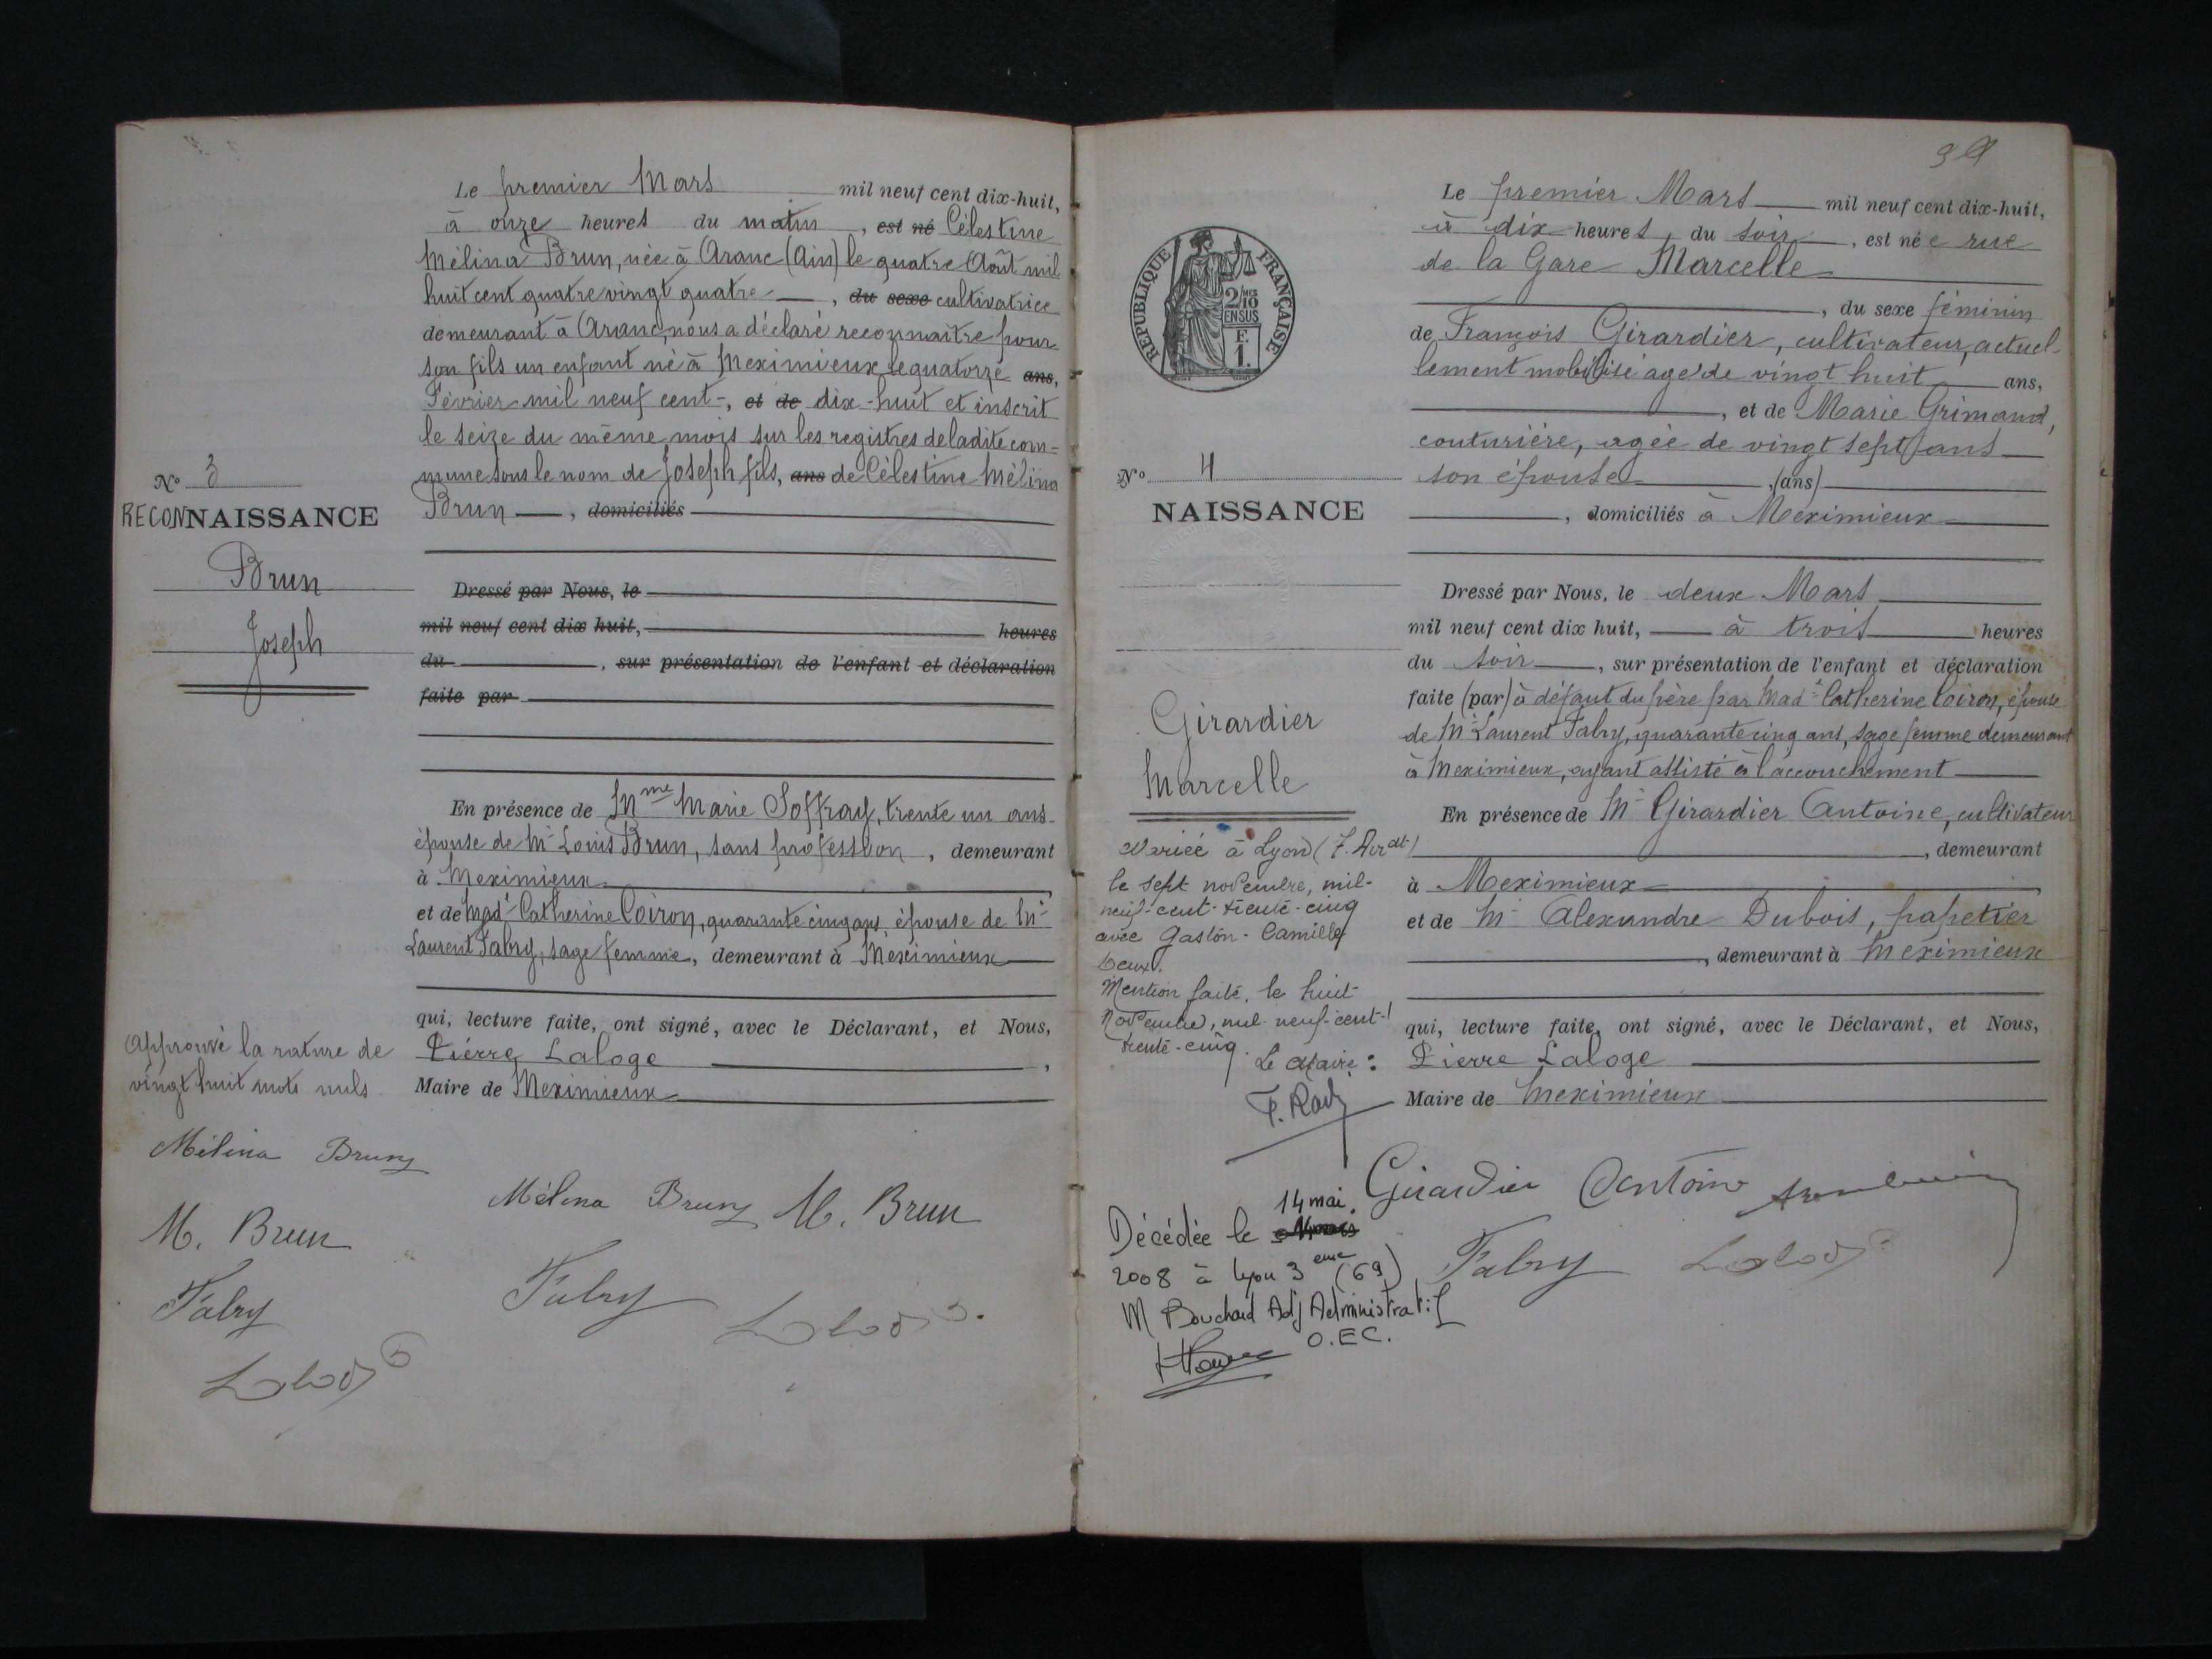 Le premier Mars mil neuf cent dix-huit,
à onze heures du matin, est né Célestine
Mélina Brun, née à Aranc (Ain) le quatre Août mil
huit cent quatre vingt quatre, du sexe cultivatrice
demeurant à Aranc, nous a déclaré reconnaître pour
son fils un enfant né à Meximieux le quatorze ans,
Février mil neuf cent-, et de dix-huit et inscrit
le seize du même mois sur les registres de ladite com=
mune sous le nom de Joseph fils, ans de Célestine Mélina
Brun, domiciliés
No 3
RECONNAISSANCE
Brun
Joseph
Dressé par Nous, le
mil neuf cent dix huit, heures
du , sur présentation de l'enfant et déclaration
faite par
En présence de Mme Marie Soffray, trente un ans
épouse de Mr Louis Brun, sans profession, demeurant
à Meximieux
et de Made Catherine Coiron, quarante cinq ans, épouse de Mr
Laurent Fabry, sage femme, demeurant à Meximieux
qui, lecture faite, ont signé, avec le Déclarant, et Nous,
Pierre Laloge,
Maire de Meximieux
Approuvé la rature de
vingt huit mots nuls
Mélina Brun
M. Brun
Fabry
Laloge
Mélina Brun M. Brun
Fabry Laloge
39
RÉPUBLIQUE FRANÇAISE
2/10
EN SUS
F.
1.
Le premier Mars mil neuf cent dix-huit,
à dix heures du soir, est née rue
de la Gare Marcelle
, du sexe féminin
de François Girardier, cultivateur, actuel-
lement mobilisé agé de vingt huit ans,
, et de Marie Grimand,
couturière, agée de vingt sept ans
son épouse (ans)
, domiciliés à Meximieux
No 4
NAISSANCE
Girardier
Marcelle
Dressé par Nous, le deux Mars
mil neuf cent dix huit, à trois heures
du soir, sur présentation de l'enfant et déclaration
faite (par) à défaut du père par Made Catherine Coiron, épouse
de Mr Laurent Fabry, quarante cinq ans, sage femme demeurant
à Meximieux, ayant assisté à l'accouchement
En présence de Mr Girardier Antoine, cultivateur
, demeurant
à Meximieux
et de Mr Alexandre Dubois, papetier
, demeurant à Meximieux
qui, lecture faite, ont signé, avec le Déclarant, et Nous,
Pierre Laloge
Maire de Meximieux
Mariée à Lyon (7. Arrdt)
le sept novembre, mil-
neuf-cent-trente-cinq
avec Gaston-Camille
Mention faite, le huit
Novembre, mil-neuf-cent-
trente-cinq.
Le Maire :
Girardier Antoine
Fabry Laloge
14 mai
Décédée le
2008 à Lyon 3eme (69)
M Bouchard Adj Administratif
O.E.C.